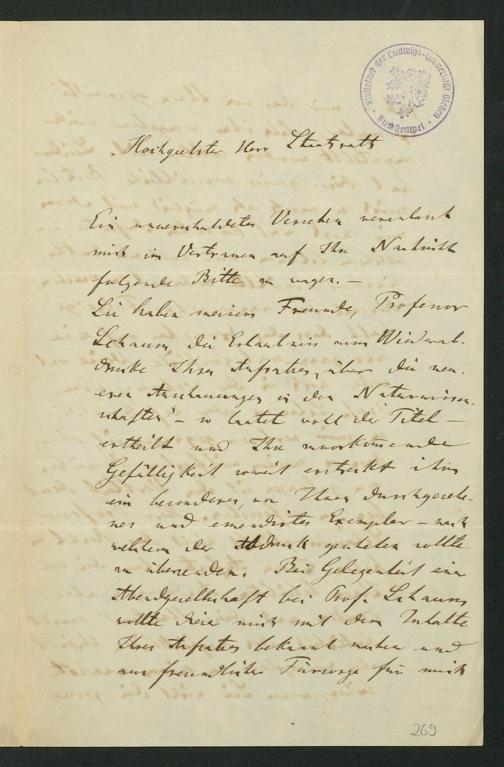 Bibliothek der Ludwigs-Universität Gießen
Buchstempel
Hochgeehrter Herr Staatsrath
Ein unverschuldetes Versehen veranlasst
mich im Vertrauen auf Ihre Nachsicht
folgende Bitte zu wagen. —
Sie haben meinem Freunde, Professor
die Erlaubniss zum Wiederab-
drucke Ihres Aufsatzes „über die neu-
eren Anschauungen in den Naturwissen-
schaften“ — so lautet wohl der Titel —
ertheilt und Ihre zuvorkommende
Gefälligkeit soweit erstreckt ihm
ein besonderes, von Ihnen durchgesehe-
nes und emendirtes Exemplar — nach
welchem der Abdruck geschehen sollte
zu übersenden. Bei Gelegenheit einer
Abendgesellschaft bei Prof.
wollte dieser mich mit dem Inhalte
Ihres Aufsatzes bekannt machen und
aus freundlicher Fürsorge für mich
269